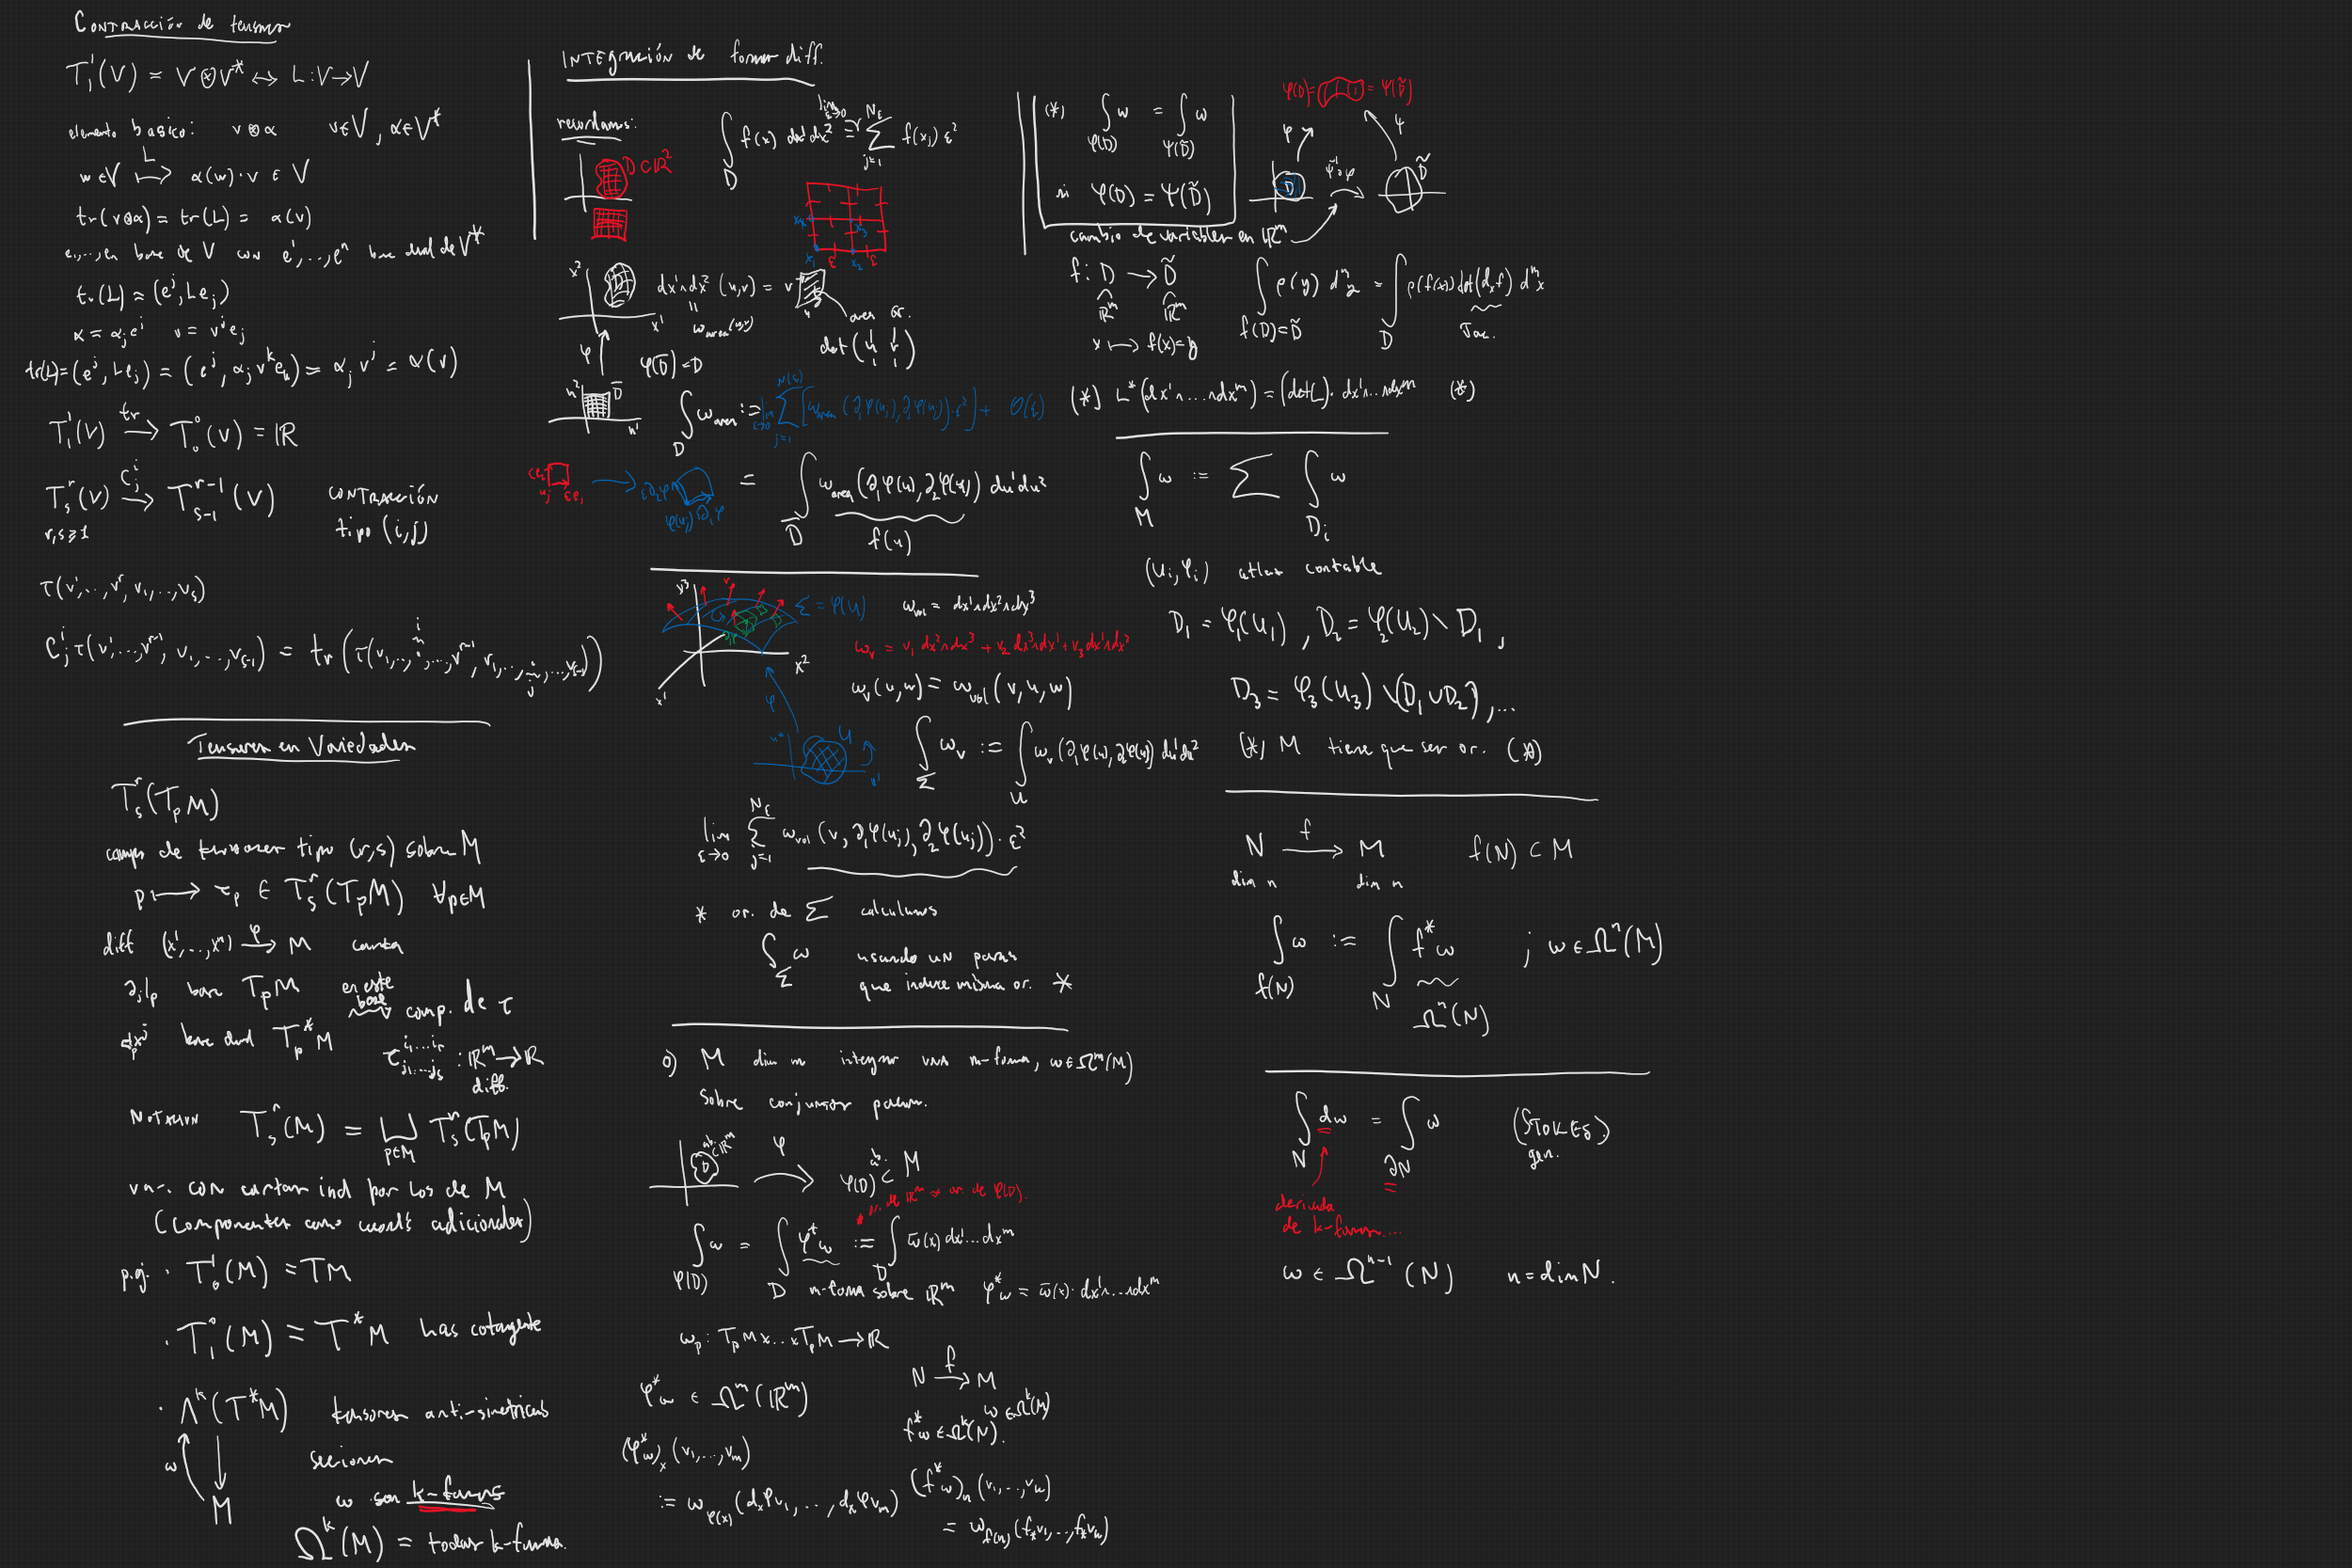 Contracción de tensores
T¹₁(V) = V⊗V* ↔ L: V→V
elemento basico: v⊗α v∈V, α∈V*
w∈V ⟼ᴸ α(w)·v ∈ V
tr(v⊗α) = tr(L) = α(v)
e₁,..,eₙ base de V con e¹,..,eⁿ base dual de V*
tr(L) = (eʲ, Leⱼ)
α = αⱼeʲ v = vʲeⱼ
tr(L) = (eʲ, Leⱼ) = (eʲ, αⱼvᵏeₖ) = αⱼvʲ = α(v)
T¹₁(V) →ᵗʳ T⁰₀(V) = ℝ
Tʳₛ(V) →Cⁱⱼ Tʳ⁻¹ₛ₋₁(V) contracción
r,s≥1 tipo (i,j)
τ(v¹,..,vʳ, v₁,..,vₛ)
Cⁱⱼτ(v¹,...,vʳ⁻¹, v₁,..,vₛ₋₁) = tr(τ(v₁,..,·,...,vʳ⁻¹,v₁,..,·,...,vₛ₋₁))
Tensores en Variedades
Tʳₛ(TₚM)
campo de tensores tipo (r,s) sobre M
p ⟼ τₚ ∈ Tʳₛ(TₚM) ∀p∈M
diff (x¹,..,xⁿ) →ᵠ M carta
∂ⱼ|ₚ base TₚM en este base
dₚxʲ base dual Tₚ*M ⇝ comp. de τ
τ^{i₁...iᵣ}_{j₁...jₛ} : ℝᵐ→ℝ
diff.
Notación Tʳₛ(M) = ⨆_{p∈M} Tʳₛ(TₚM)
var. con cartas ind por los de M
(componentes como coord's adicionales)
p.ej. · T¹₀(M) = TM
· T⁰₁(M) = T*M has cotangente
· Λᵏ(T*M) tensores anti-simetricos
ω secciones
M ω son k-formas
Ωᵏ(M) = todas k-forma.
Integración de formas diff.
recordamos:
D⊂ℝ²
∫_D f(x) dx¹dx² = lim_{ε→0} Σ_{j=1}^{N_ε} f(xⱼ) ε²
x₁ ε x₂ ε
x²
dx¹∧dx² (u,v) = v
x¹ ω_area(u,v) u area or.
det(u v)
φ φ(D̄)=D
u² D̄
u¹
∫_D ω_area := lim_{ε→0} Σ_{j=1}^{N(ε)} [ω_area(∂₁φ(uⱼ), ∂₂φ(uⱼ))·ε²] + O(ε)
εe₂ uⱼ εe₁ → ε∂₂φ φ(uⱼ) ∂₁φ
= ∫_D̄ ω_area(∂₁φ(u), ∂₂φ(u)) du¹du²
f(u)
x³ v Σ = φ(U) ω_vol = dx¹∧dx²∧dx³
ω_v = v₁dx²∧dx³ + v₂dx³∧dx¹ + v₃dx¹∧dx²
x² x¹
ω_v(u,w) = ω_vol(v,u,w)
φ
u² U u¹
∫_Σ ω_v := ∫_U ω_v(∂₁φ(u), ∂₂φ(u)) du¹du²
lim_{ε→0} Σ_{j=1}^{N_ε} ω_vol(v, ∂₁φ(uⱼ), ∂₂φ(uⱼ))·ε²
* or. de Σ calculamos
∫_Σ ω usando un param
que induce misma or. *
o) M dim m integrar una m-forma, ω∈Ωᵐ(M)
sobre conjuntos param.
D ab. ⊂ℝᵐ φ φ(D) ab. ⊂ M
* or. de ℝᵐ ⇝ or. de φ(D).
∫_{φ(D)} ω = ∫_D φ*ω := ∫_D ω̄(x) dx¹...dxᵐ
m-forma sobre ℝᵐ φ*ω = ω̄(x)·dx¹∧...∧dxᵐ
ωₚ: TₚM×...×TₚM→ℝ
φ*ω ∈ Ωᵐ(ℝᵐ)
(φ*ω)ₓ(v₁,...,vₘ)
:= ω_{φ(x)}(dₓφv₁,...,dₓφvₘ)
N →ᶠ M
ω∈Ωᵏ(M)
f*ω∈Ωᵏ(N).
(f*ω)ₙ(v₁,..,vₖ)
= ω_{f(n)}(f_*v₁,..,f_*vₖ)
(*) ∫_{φ(D)} ω = ∫_{ψ(D̃)} ω
si φ(D) = ψ(D̃)
φ(D) = = ψ(D̃)
φ ψ
D ψ⁻¹∘φ D̃
cambio de variables en ℝᵐ
f: D → D̃
ℝᵐ ℝᵐ
x ⟼ f(x)=y
∫_{f(D)=D̃} ρ(y) dᵐy = ∫_D ρ(f(x)) det(dₓf) dᵐx
Jac.
(*) L*(dx¹∧...∧dxᵐ) = (det L)·dx¹∧...∧dxᵐ (*)
∫_M ω := Σ ∫_{Dᵢ} ω
(Uᵢ,φᵢ) atlas contable
D₁ = φ₁(U₁), D₂ = φ₂(U₂)\D₁,
D₃ = φ₃(U₃)\(D₁∪D₂),...
(*) M tiene que ser or. (*)
N →ᶠ M f(N) ⊂ M
dim n dim m
∫_{f(N)} ω := ∫_N f*ω ; ω∈Ωⁿ(M)
Ωⁿ(N)
∫_N dω = ∫_{∂N} ω (Stokes)
gen.
derivada
de k-formas...
ω ∈ Ωⁿ⁻¹(N) n = dim N.